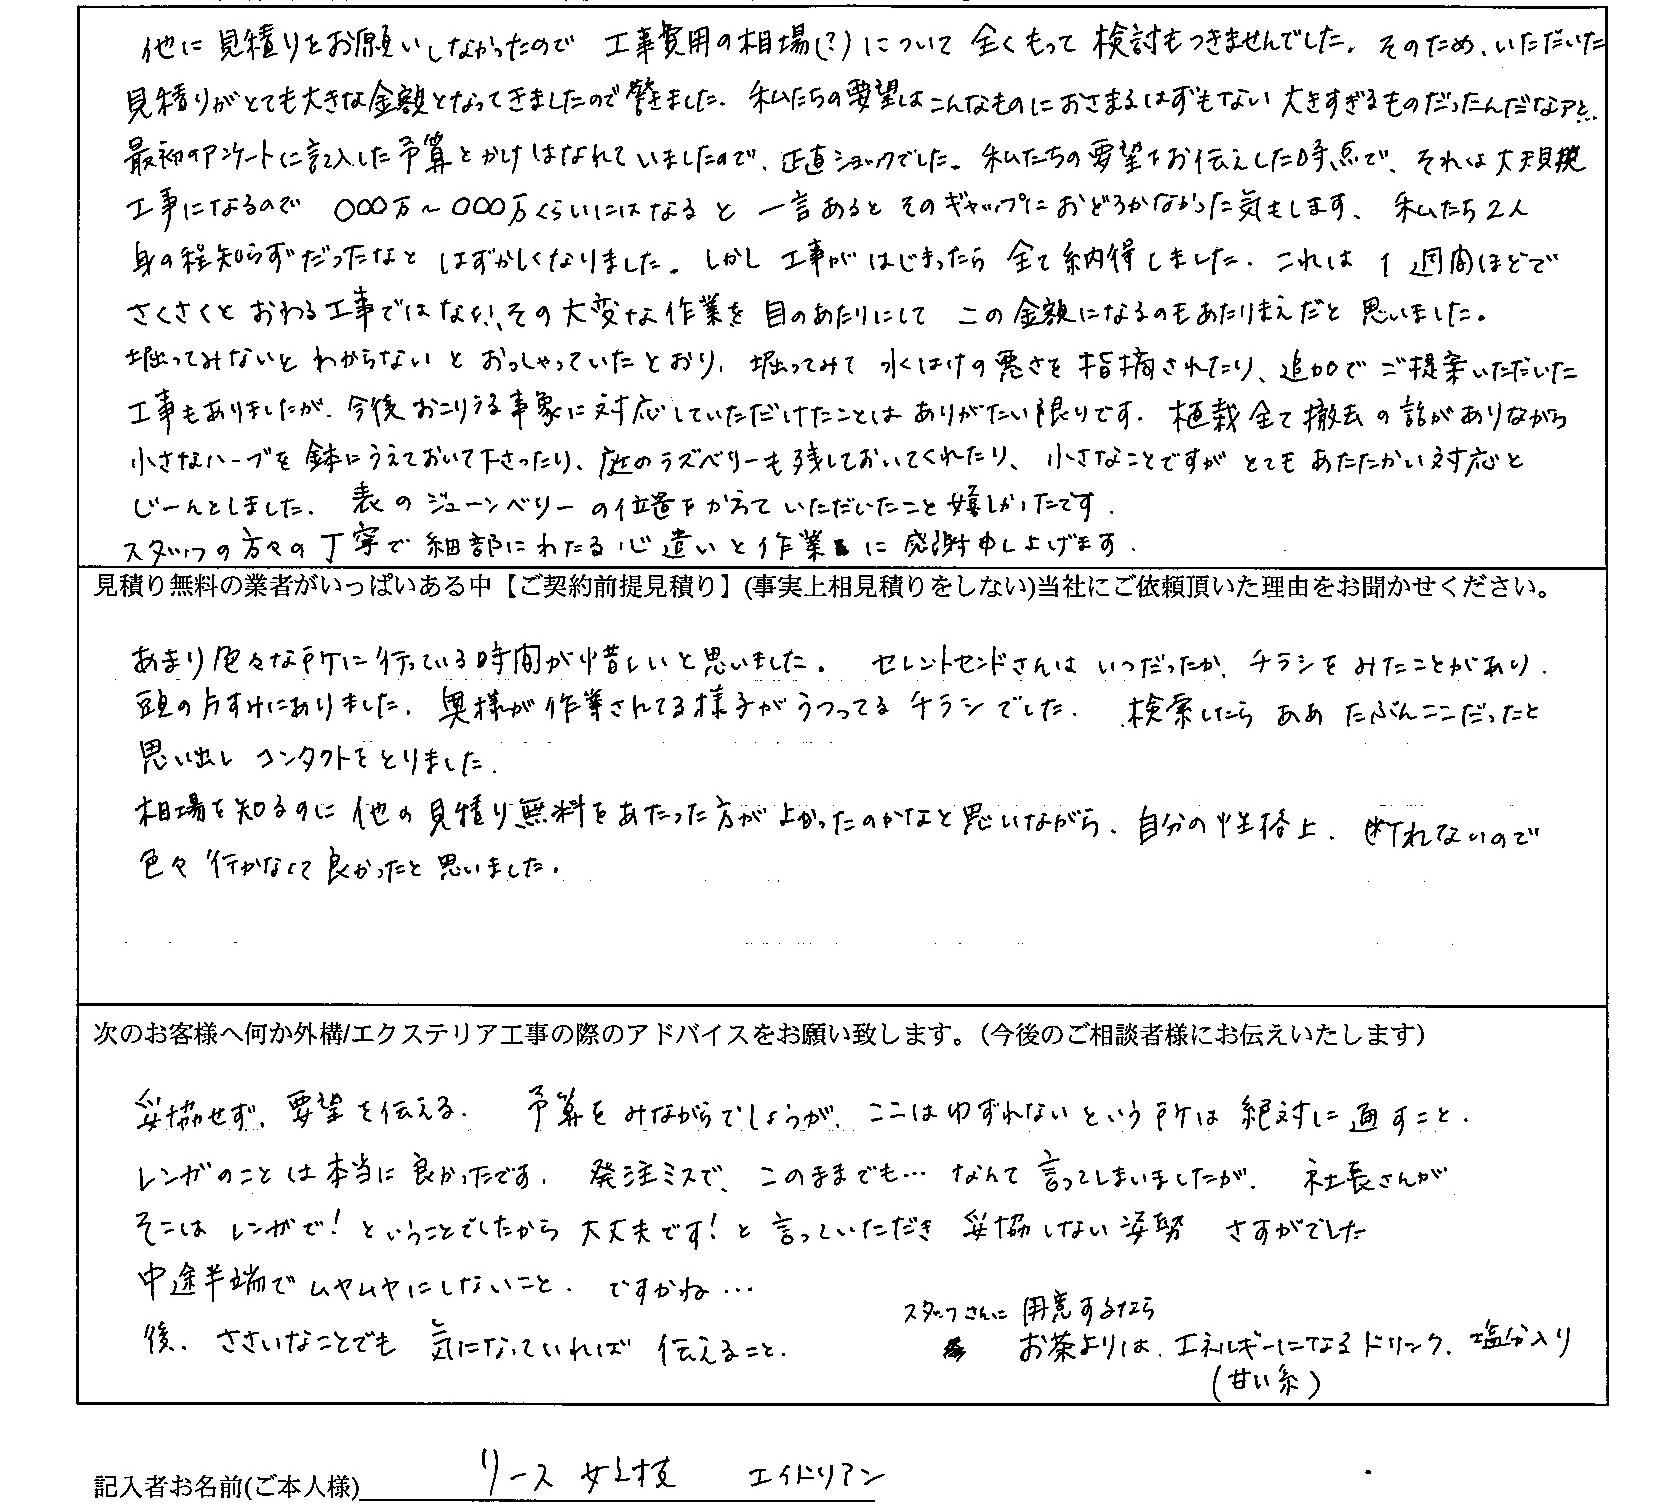 他に見積りをお願いしなかったので 工事費用の相場(?)について 全くもって 検討もつきませんでした。そのため、いただいた
見積りがとても大きな金額となってきましたので驚きました。私たちの要望はこんなものにおさまるはずもない 大きすぎるものだったんだなアと…
最初のアンケートに記入した予算とかけはなれていましたので、正直ショックでした。私たちの要望をお伝えした時点で、それは大規模
工事になるので 〇〇〇万～〇〇〇万くらいにはなると 一言あるとそのギャップにおどろかなかった気もします、私たち2人
身の程知らずだったなと はずかしくなりました。しかし 工事がはじまったら 全て納得しました。これは 1週間ほどで
さくさくと おわる工事ではない!、その大変な作業を目のあたりにして この金額になるのもあたりまえだと思いました。
堀ってみないと わからないと おっしゃっていたとおり、堀ってみて 水はけの悪さを指摘されたり、追加でご提案いただいた
工事もありましたが、今後おこりうる事象に対応していただけたことはありがたい限りです。植栽全て撤去の話がありながら
小さなハーブを鉢にうえておいて下さったり、庭のラズベリーも残しておいてくれたり、小さなことですが とてもあたたかい対応と
じーんとしました、表のジューンベリーの位置をかえていただいたこと嬉しかったです.
スタッフの方々の丁寧で細部にわたる心遣いと作業に感謝申し上げます.
見積り無料の業者がいっぱいある中【ご契約前提見積り】(事実上相見積りをしない)当社にご依頼頂いた理由をお聞かせください。
あまり色々な所に行っている時間が惜しいと思いました。 セレントセンドさんは いつだったか、チラシをみたことがあり.
頭の片すみにありました、奥様が作業されてる様子がうつってるチラシでした. 検索したら ああ たぶんここだったと
思い出し コンタクトをとりました.
相場を知るのに他の見積り無料をあたった方がよかったのかなと思いながら、自分の性格上、断れないので
色々行かなくて良かったと思いました.
次のお客様へ何か外構/エクステリア工事の際のアドバイスをお願い致します。(今後のご相談者様にお伝えいたします)
妥協せず、要望を伝える. 予算をみながらでしょうが、ここはゆずれないという所は絶対に通すこと.
レンガのことは本当に良かったです. 発注ミスで、このままでも…なんて言ってしまいましたが、社長さんが
そこはレンガで!ということでしたから大丈夫です!と言っていただき 妥協しない姿勢 さすがでした
中途半端でムヤムヤにしないこと. ですかね…
後、ささいなことでも 気になっていれば 伝えること.
スタッフさんに 用意するなら
お茶よりは、エネルギーになるドリンク、塩分入り
(甘い系)
記入者お名前(ご本人様) リース エイドリアン